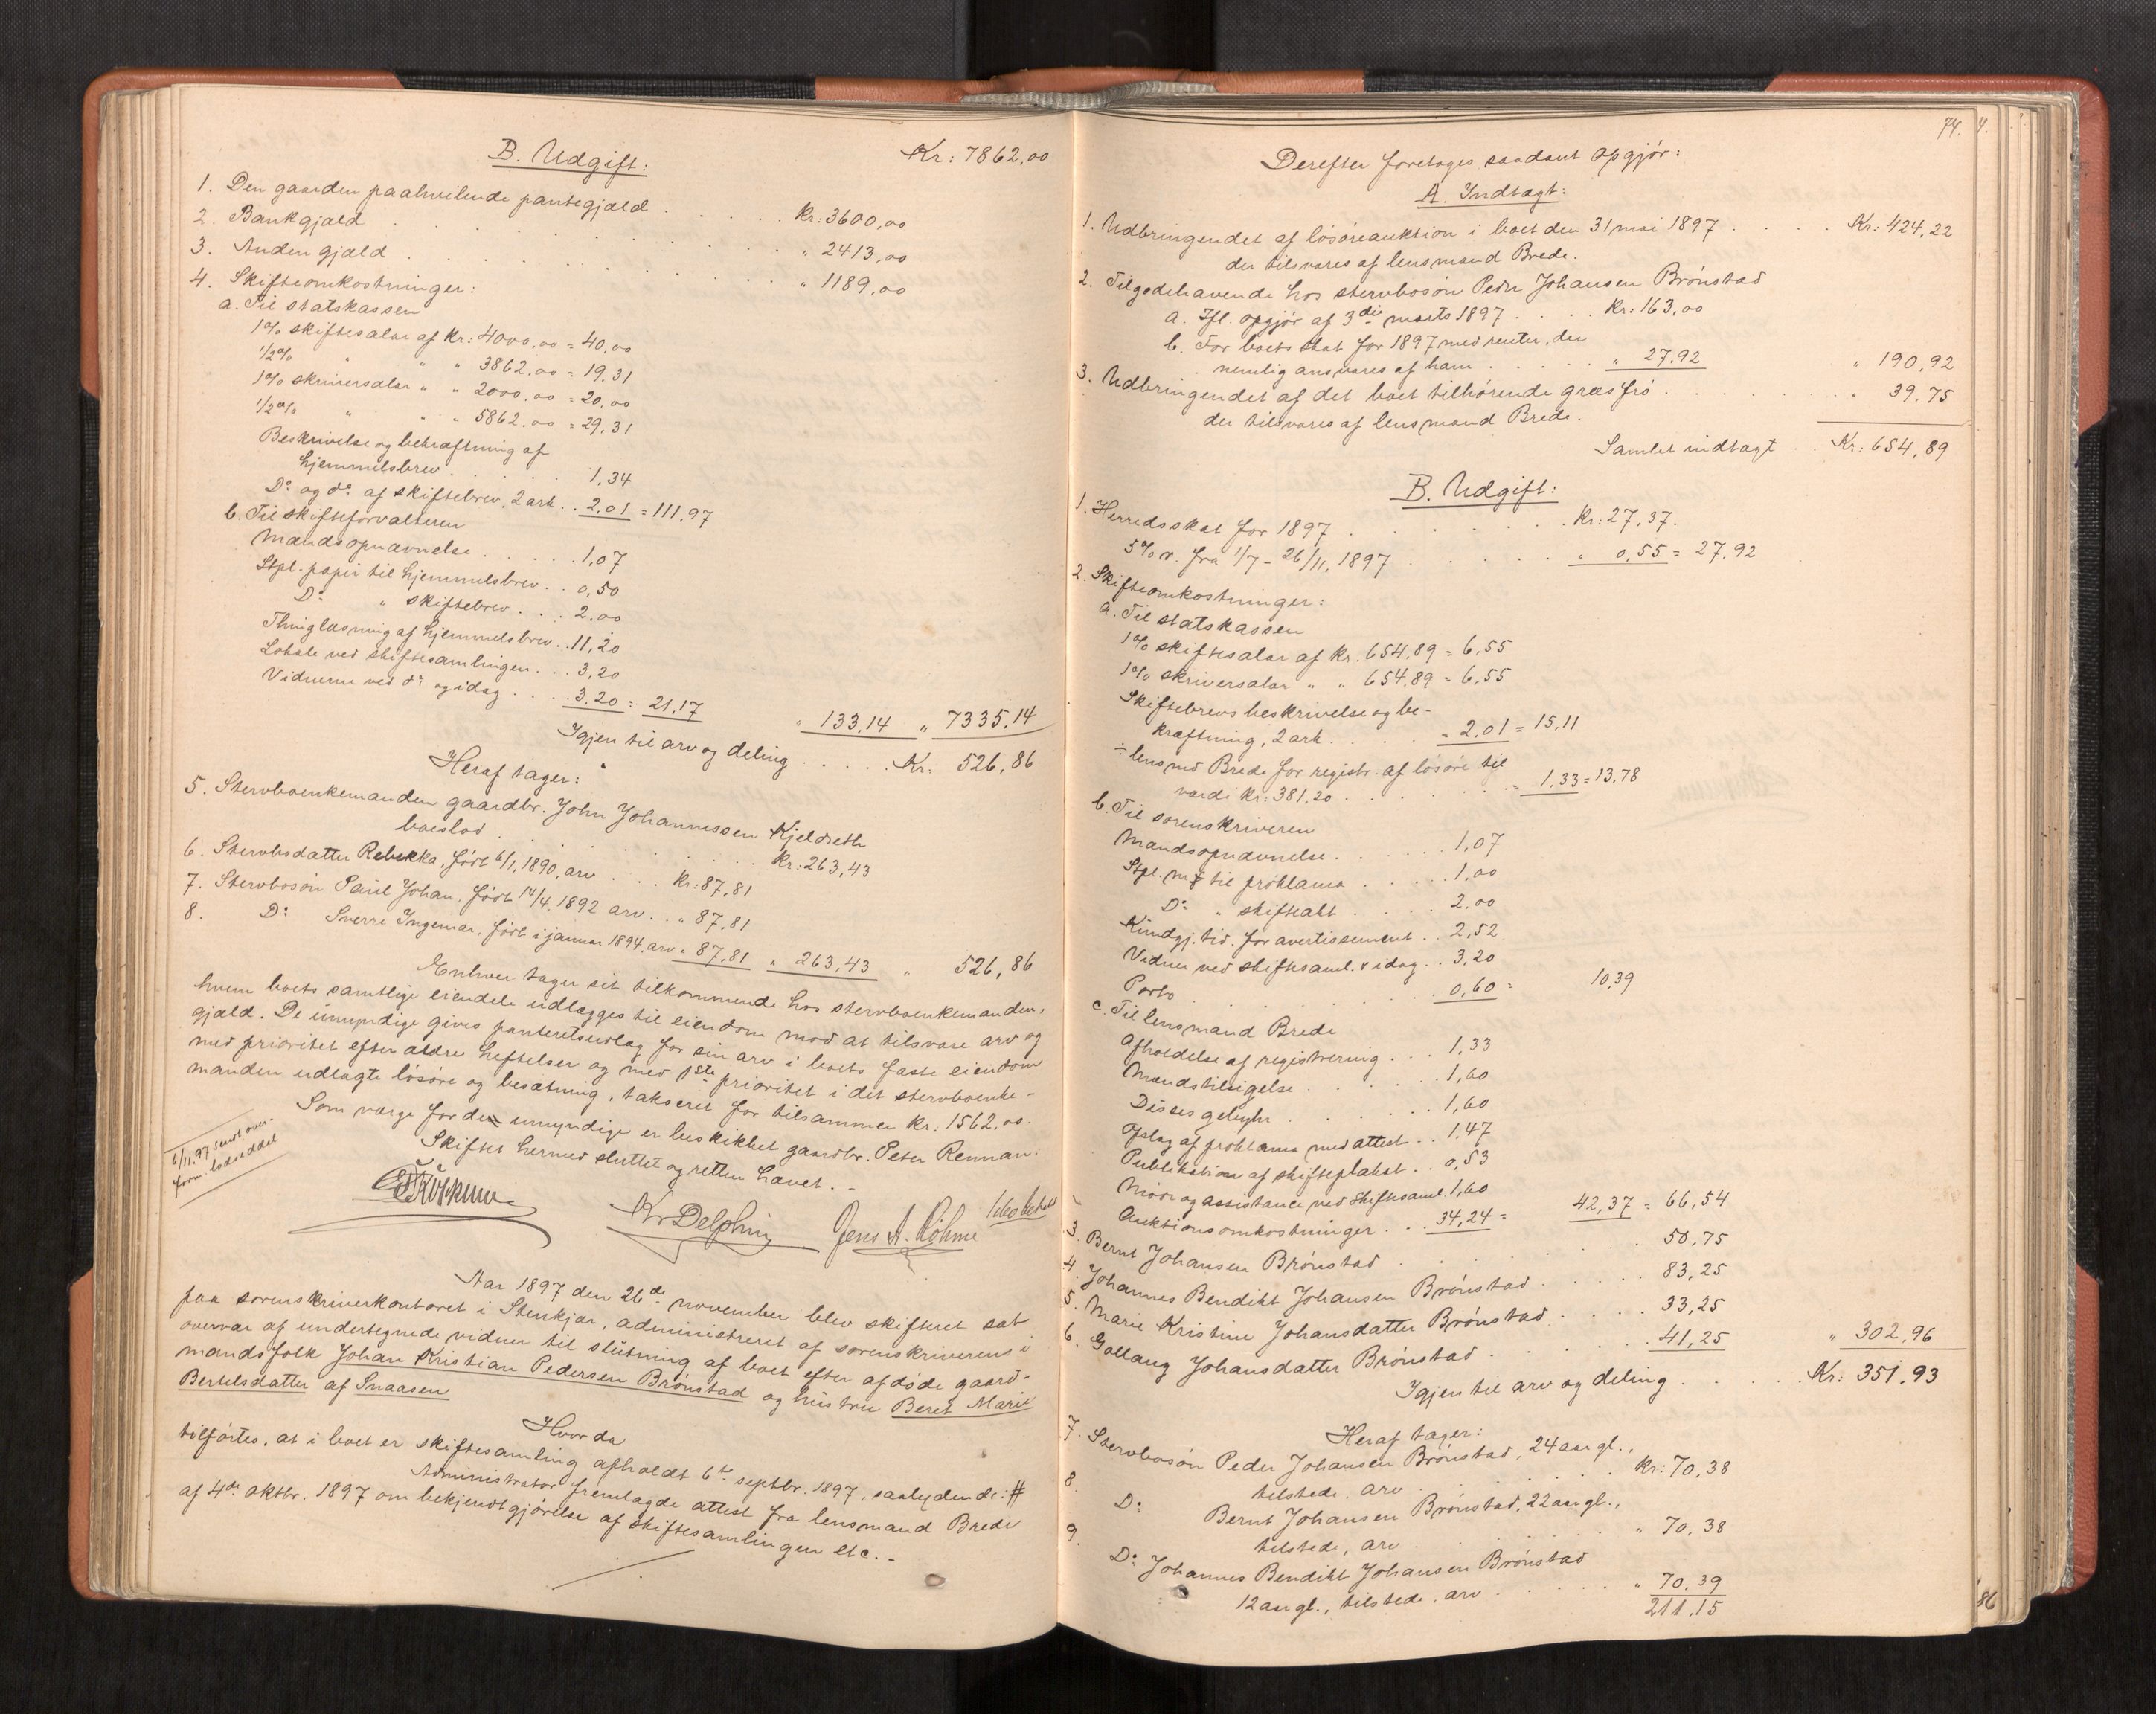 Kr: 7862,00
B. Udgift:
1. Den gaarden paahvilende pantegjæld . . . . . Kr: 3600,00
2. Bankgjæld . . . . . " 2413,00
3. Anden gjæld . . . . . " 1189,00
4. Skifteomkostninger:
a. Til statskassen
1% skiftesalær af Kr: 4000,00 = 40,00
1/2% " " " 3862,00 = 19,31
1% skriversalær " " 2000,00 = 20,00
1/2% " " " 5862,00 = 29,31
Beskrivelse og bekræftning af
hjemmelsbrev . . . . 1,34
Do og do af skiftebrev, 2 ark . . 2,01 = 111,97
b. Til skifteforvalteren
Mandsopnævnelse . . . . . 1,07
Stpl. papir til hjemmelsbrev . . 0,50
Do " skiftebrev . . . 2,00
Thinglæsning af hjemmelsbrev . . 11,20
Lokale ved skiftesamlingen . . . 3,20
Vidnerne ved do og idag . . . . 3,20 = 21,17 " 133,14 " 7335,14
Igjen til arv og deling . . . . . Kr: 526,86
Heraf tager:
5. Stervboenkemanden gaardbr. John Johannessen Kjeldseth
boeslod . . . . . Kr: 263,43
6. Stervbodatter Rebekka, født 6/1, 1890, arv . . . Kr: 87,81
7. Stervbosøn Paul Johan, født 14/4, 1892 arv . . " 87,81
8. Do Sverre Ingemar, født i januar 1894, arv " 87,81 " 263,43 " 526,86
Enhver tager sit tilkommende hos stervboenkemanden,
hvem boets samtlige eiendele udlægges til eiendom mod at tilsvare arv og
gjæld. De umyndige gives panteretsudlæg for sin arv i boets faste eiendom
med prioritet efter ældre heftelser og med 1ste prioritet i det stervboenke-
manden udlagte løsøre og besætning, takseret for tilsammen Kr. 1562,00.
Som værge for de umyndige er beskikket gaardbr. Peter Rennan.
Skiftet hermed sluttet og retten hævet. -
6/11.97 sendt over-
form. lodseddel
Kr Delphin Jens A. Røhme
Aar 1897 den 26de november blev skifteret sat
paa sorenskriverkontoret i Stenkjær, administreret af sorenskriveren i
overvær af undertegnede vidner til slutning af boet efter afdøde gaard-
mandsfolk Johan Kristian Pedersen Brønstad og hustru Beret Marie
Bertelsdatter af Snaasen
Hvorda
tilførtes, at i boet er skiftesamling afholdt 6te septbr. 1897, saalydende: #
Administrator fremlagde attest fra lensmand Brede
af 4de oktbr. 1897 om bekjendtgjørelse af skiftesamlingen etc. -
74.
Derefter foretages saadant opgjør:
A. Indtægt:
1. Udbringendet af løsøreauktion i boet den 31 mai 1897 . . . . Kr: 424,22
der tilsvares af lensmand Brede.
2. Tilgodehavende hos stervbosøn Peder Johansen Brønstad
a. Ifl. opgjør af 3die marts 1897 . . . . Kr: 163,00
b. For boets skat for 1897 med renter, der
nemlig ansvares af ham . . . . . " 27,92 " 190,92
3. Udbringendet af det boet tilhørende græsfrø . . . . . " 39,75
der tilsvares af lensmand Brede.
Samlet indtægt . . Kr: 654,89
B. Udgift:
1. Herredsskat for 1897 . . . . . Kr: 27,37.
5% r. fra 1/7 - 26/11, 1897 . . . . . " 0,55 = 27,92
2. Skifteomkostninger:
a. Til statskassen
1% skiftesalær af Kr. 654,89 = 6,55
1% skriversalær " " 654,89 = 6,55
Skiftebrevs beskrivelse og be-
kræftning, 2 ark . . . . " 2,01 = 15,11
÷ lensmd Brede for registr. af løsøre til
værdi Kr: 381,20 . . . . . " 1,33 = 13,78
b. Til sorenskriveren
Mandsopnævnelse . . . . . 1,07
Stpl. til proklama . . . . . 1,00
Do " skifteakt . . . . 2,00
Kundgj. tid. for avertissement . . 2,52
Vidner ved skiftesaml. & idag . . 3,20
Porto . . . . . 0,60 = 10,39
c. Til lensmand Brede
Afholdelse af registrering . . . 1,33
Mændstilsigelse . . . . . 1,60
Disses gebyhr . . . . . 1,60
Opslag af proklama med attest . . 1,47
Publikation af skifteplakat . . 0,53
Møde og assistance ved skiftesaml. 1,60
Auktionsomkostninger . . . 34,24 = 42,37 = 66,54
3. Bernt Johansen Brønstad . . . . . 50,75
4. Johannes Bendikt Johansen Brønstad . . . . . 83,25
5. Marie Kristine Johansdatter Brønstad . . . . 33,25
6. Gollaug Johansdatter Brønstad . . . . . 41,25 " 302,96
Igjen til arv og deling . . . . . Kr: 351,93
Heraf tager:
7. Stervbosøn Peder Johansen Brønstad, 24 aar gl.,
tilstede, arv . . . . . Kr: 70,38
8. Do Bernt Johansen Brønstad, 22 aar gl.,
tilstede, arv . . . . . " 70,38
9. Do Johannes Bendikt Johansen Brønstad
12 aar gl., tilstede, arv . . . . . " 70,39
211,15